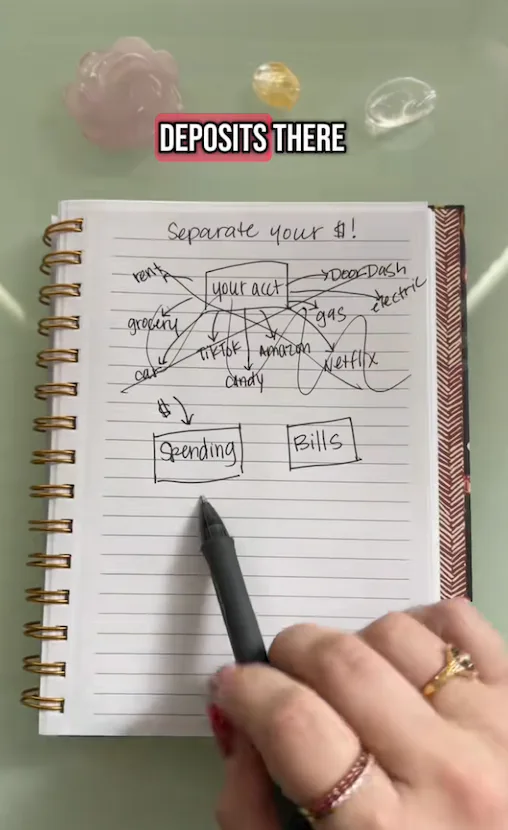 DEPOSITS THERE
Separate your $!
rent
your acct
DoorDash
electric
grocery
gas
TikTok
Amazon
Netflix
car
candy
$
Spending
Bills